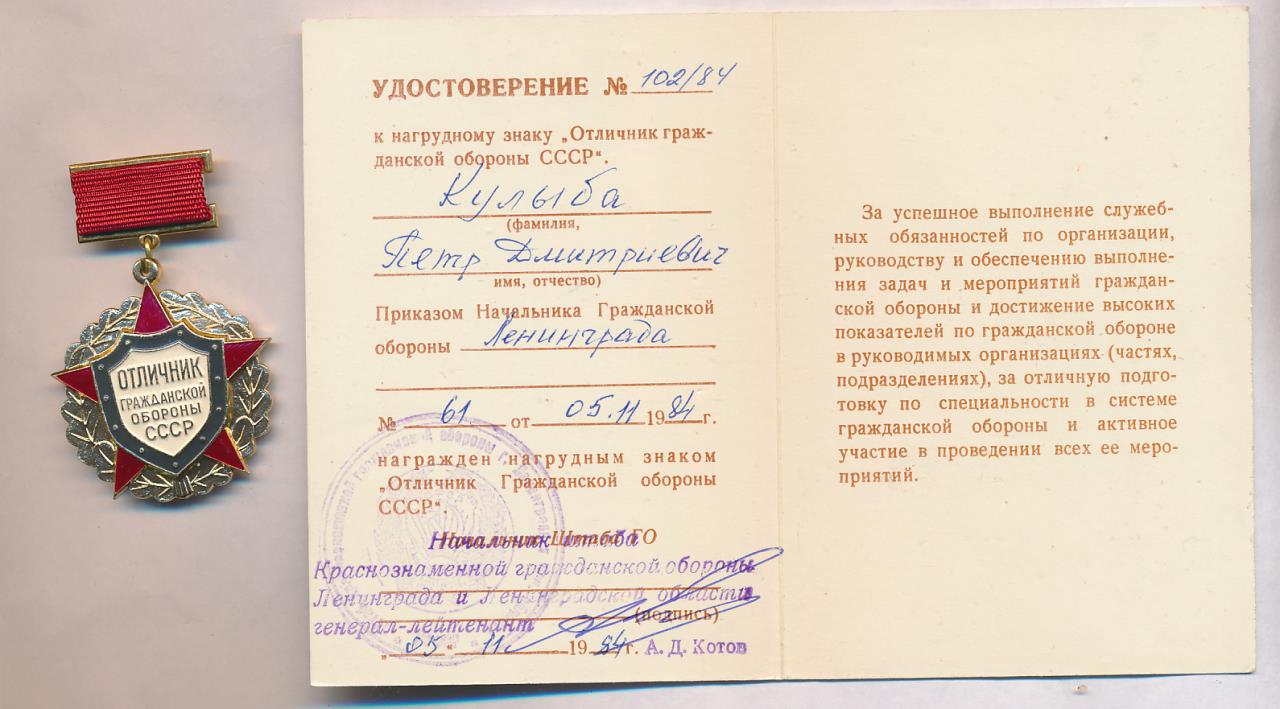 ОТЛИЧНИК
ГРАЖДАНСКОЙ
ОБОРОНЫ
СССР
УДОСТОВЕРЕНИЕ № 102/84
к нагрудному знаку „Отличник граж-
данской обороны СССР“.
Кулыба
(фамилия,
Петр Дмитриевич
имя, отчество)
Приказом Начальника Гражданской
обороны Ленинграда
№ 61 от 05.11 1984 г.
награжден нагрудным знаком
„Отличник Гражданской обороны
СССР“.
Начальник Штаба ГО
Начальник штаба
Краснознаменной гражданской обороны
Ленинграда и Ленинградской области
(подпись)
генерал-лейтенант
„05“ 11 1984 г. А. Д. Котов
За успешное выполнение служеб-
ных обязанностей по организации,
руководству и обеспечению выполне-
ния задач и мероприятий граждан-
ской обороны и достижение высоких
показателей по гражданской обороне
в руководимых организациях (частях,
подразделениях), за отличную подго-
товку по специальности в системе
гражданской обороны и активное
участие в проведении всех ее меро-
приятий.